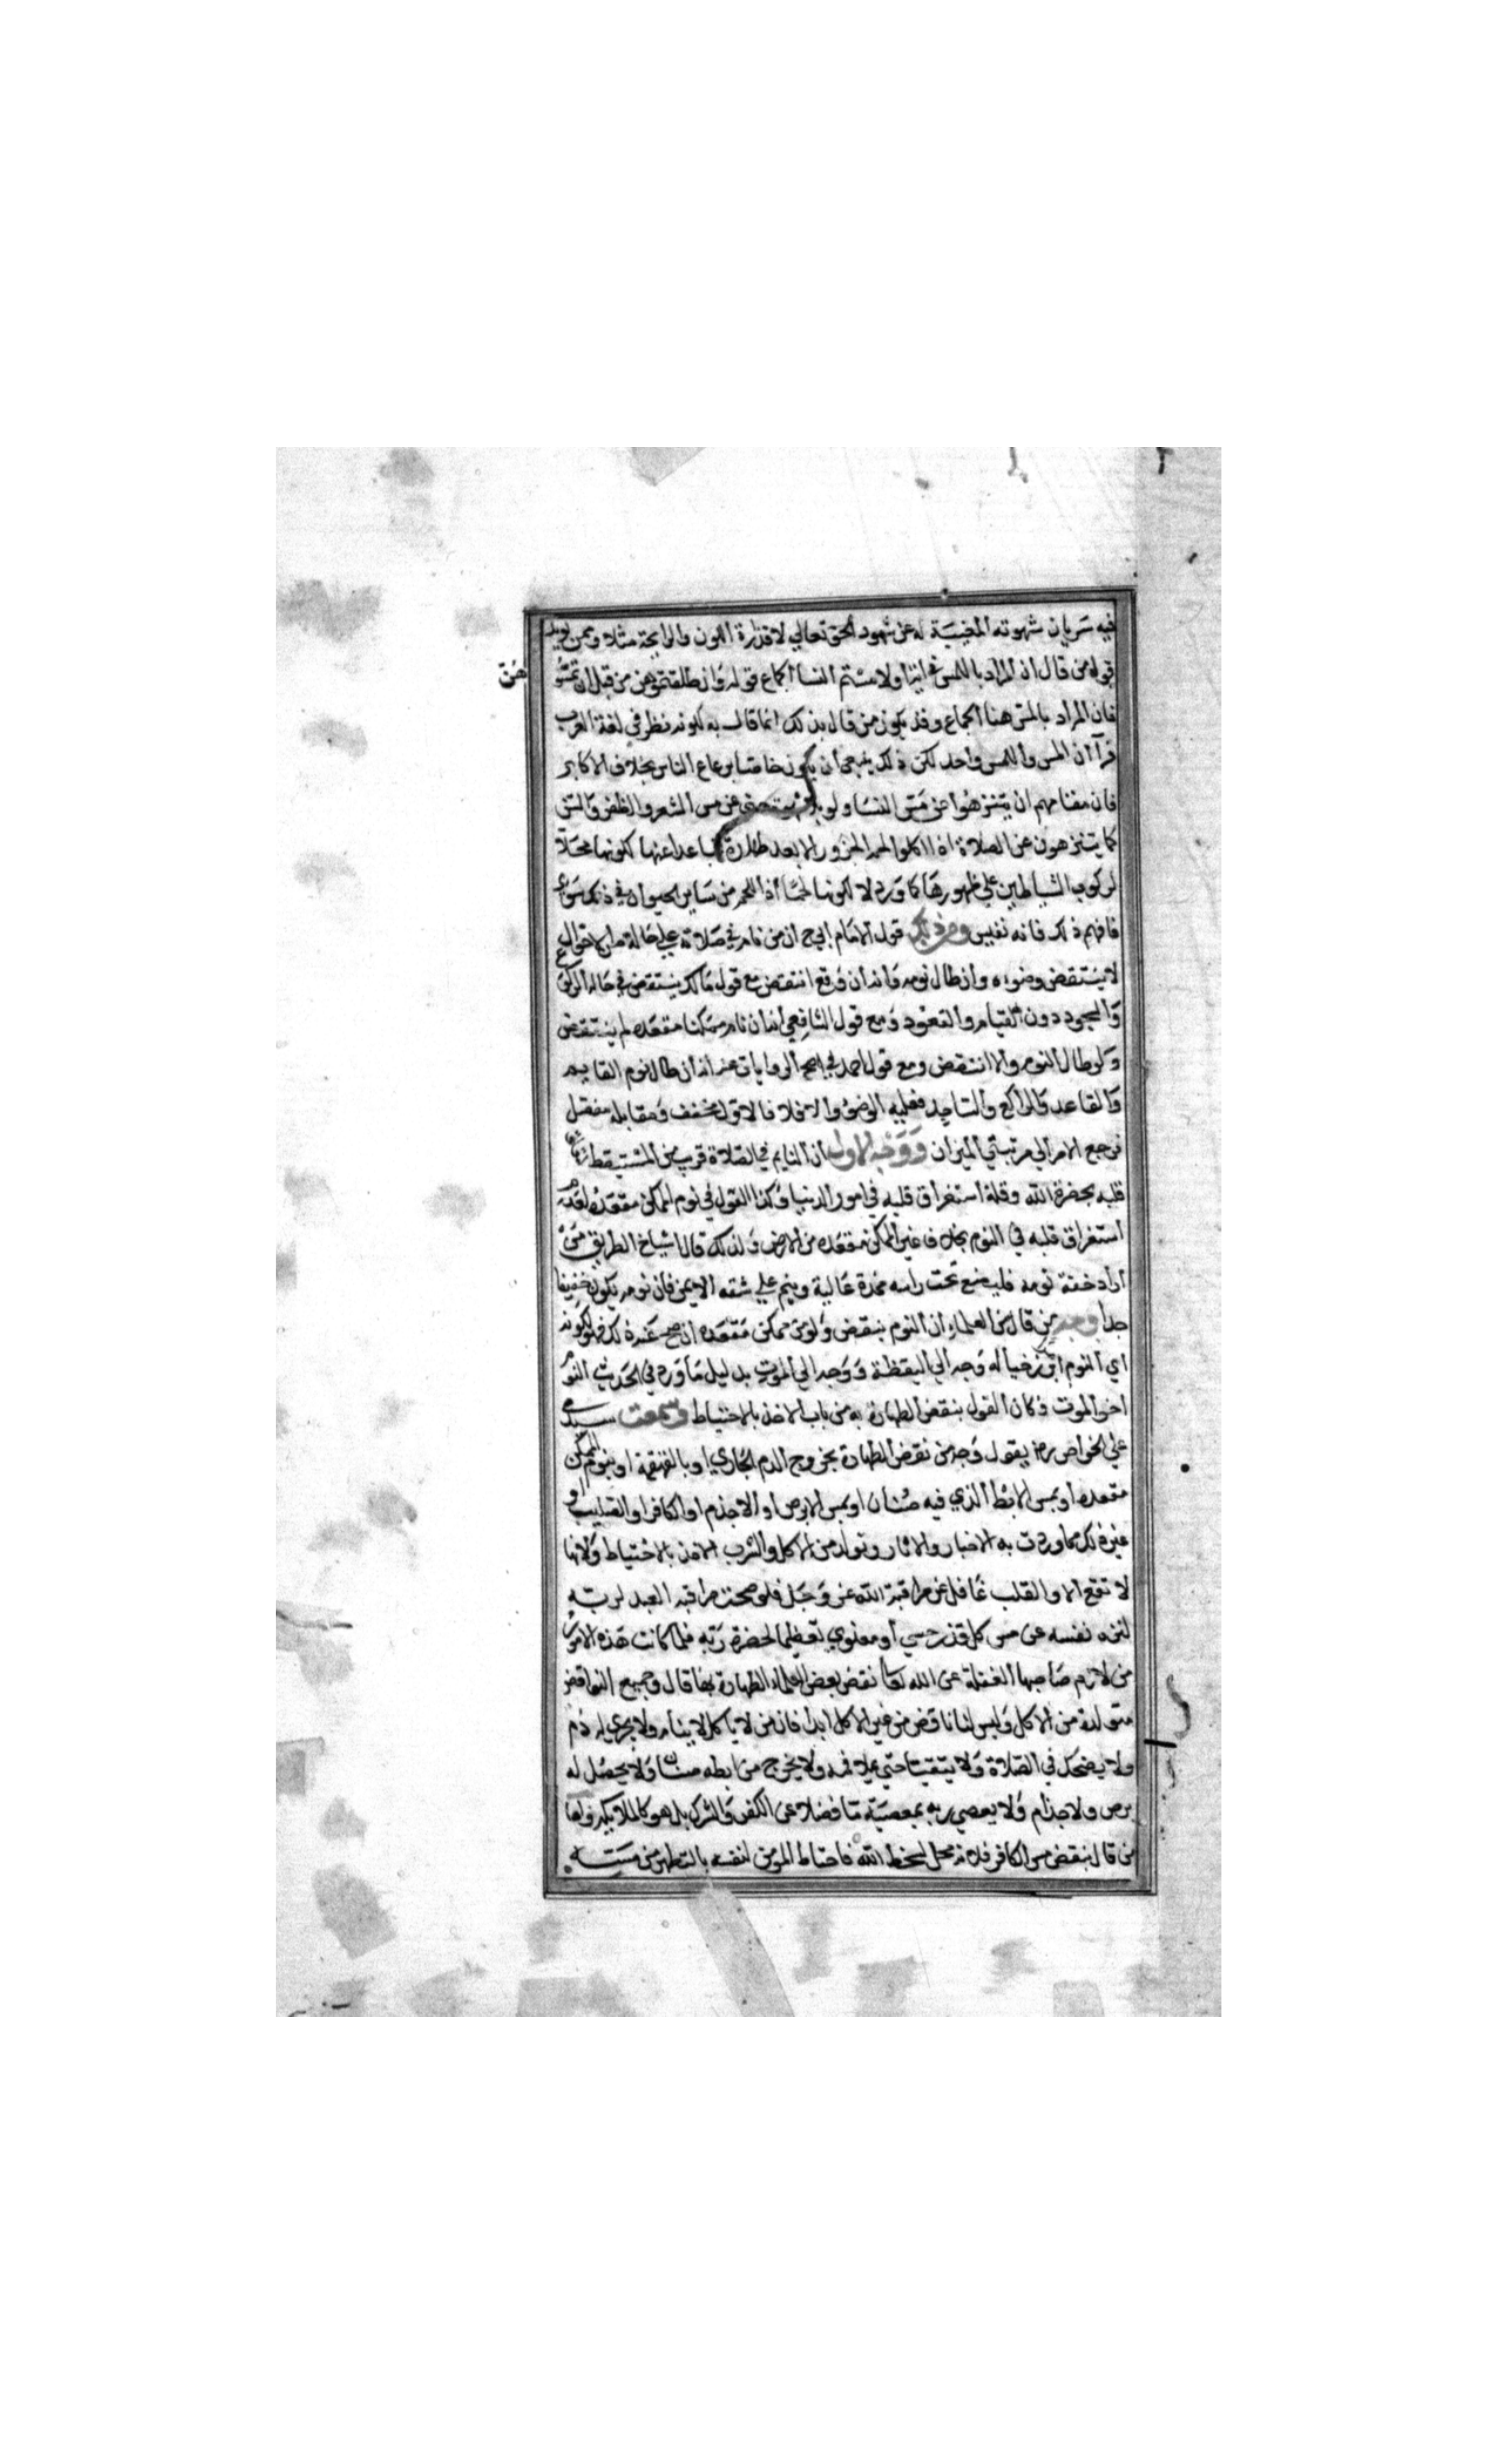 فيه سريان شهوته المغيبة له عن شهود الحق تعالي لا قذارة اللون والرايحة مثلا وممن يويد
قوله من قال ان المراد باللمس في اية اولامستم النسا الجماع قوله وان طلقتموهن من قبل ان تمسو
هن
فان المراد بالمس هنا الجماع وقد يكون من قال بذلك انما قال به لكونه نظر في لغة العرب
فرآ ان المس واللمس واحد لكن ذلك ينبغي ان يكون خاصا برعاع الناس بخلاف الاكابر
فان مقامهم ان يتنزهوا عن مس النسا ولو بلا شهوة حتي عن مس الشعر والظفر والسن
كما يتنزهون عن الصلاة اذا اكلوا لحم الجزور الا بعد طهارة تباعدا عنها لكونها محلا
لركوب الشياطين علي ظهورها كما ورد لا لكونها لحما اذ اللحم من ساير الحيوان في ذلك سواء
فافهم ذلك فانه نفيس ومن ذلك قول الامام ابي ح ان من نام في صلاته علي حالة من الاحوال
لا ينتقض وضوءه وان طال نومه وانه ان وقع انتقض مع قول مالك ينتقض في حال الركوع
والسجود دون القيام والقعود ومع قول الشافعي انه ان نام ممكنا مقعده لم ينتقض
ولو طال النوم والا انتقض ومع قول احمد في اصح الروايات عنه انه ان طال نوم القايم
والقاعد والراكع والساجد فعليه الوضوء والا فلا فالاول مخفف ومقابله مفصل
فرجع الامر الي مرتبتي الميزان ووجه الاول ان النايم في الصلاة قريب من المستيقظ
قلبه بحضرة الله وقلة استغراق قلبه في امور الدنيا وكذا القول في نوم الممكن مقعده لعدم
استغراق قلبه في النوم بخلاف غير الممكن مقعده من الارض ولذلك قال اشياخ الطريق من
اراد خفة نومه فليضع تحت راسه مخدة عالية وينم علي شقه الايمن فان نومه يكون خفيفا
جدا ووجه من قال من العلماء ان النوم ينقض ولو من ممكن مقعده ان صح عنه ذلك فهو لكونه
اي النوم برزخيا له وجه الي اليقظة ووجه الي الموت بدليل ما ورد في الحديث النوم
اخو الموت فكان القول بنقض الطهارة به من باب الاخذ بالاحتياط وسمعت سيدي
علي الخواص رح يقول وجه من نقض الطهارة بخروج الدم الجاري او بالقهقهة او بنوم الممكن
مقعده او بمس الابط الذي فيه صنان او بمس الابرص او الاجذم او الكافر او الصليب او
غير ذلك مما وردت به الاخبار والاثار وتولد من الاكل والشرب الاخذ بالاحتياط ولانها
لا تقع الا والقلب غافل عن مراقبة الله عز وجل فلو صحت مراقبة العبد لربه
لنزه نفسه عن مس كل قذر حسي او معنوي تعظيما لحضرة ربه فلما كانت هذه الامور
من لازم صاحبها الغفلة عن الله تعا نقض بعض العلماء الطهارة بها قال وجميع النواقض
متولدة من الاكل وليس لنا ناقض من غير الاكل ابدا فان من لا ياكل لا ينام ولا يجري له دم
ولا يضحك في الصلاة ولا يتقيا حتي يملا فمه ولا يخرج من ابطه صنان ولا يحصل له
برص ولا جذام ولا يعصي ربه بمعصية ما فضلا عن الكفر والشرك بل هو كالملايكة واما
من قال بنقض مس الكافر فلانه محل لسخط الله فاحتاط المومن لنفسه بالتطهر من مسه